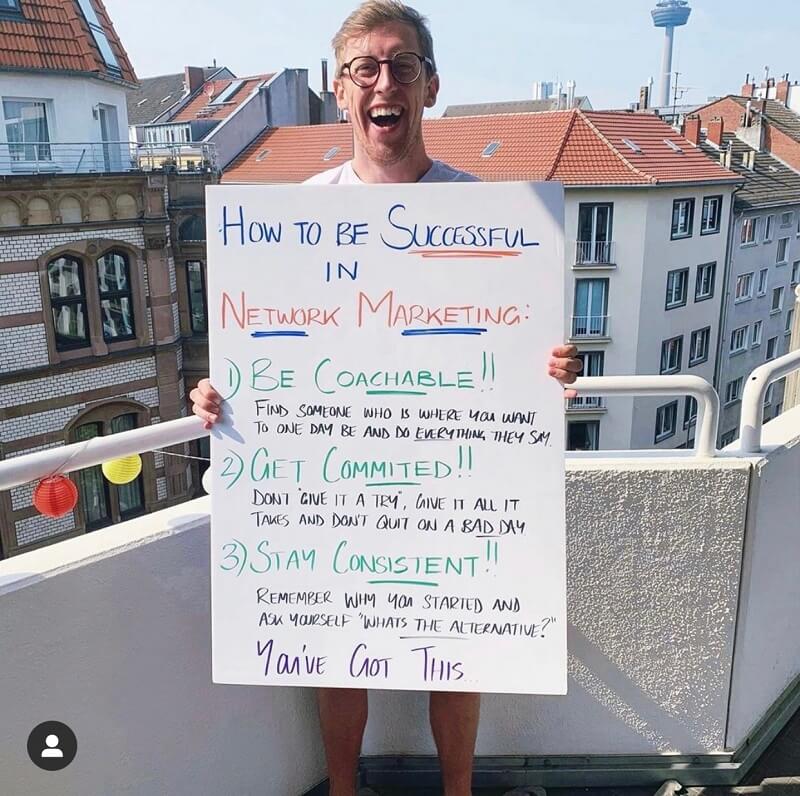 HOW TO BE SUCCESSFUL
IN
NETWORK MARKETING:
1) BE COACHABLE!!
FIND SOMEONE WHO IS WHERE YOU WANT
TO ONE DAY BE AND DO EVERYTHING THEY SAY.
2) GET COMMITED!!
DONT "GIVE IT A TRY", GIVE IT ALL IT
TAKES AND DON'T QUIT ON A BAD DAY
3) STAY CONSISTENT!!
REMEMBER WHY YOU STARTED AND
ASK YOURSELF "WHATS THE ALTERNATIVE?"
YOU'VE GOT THIS...